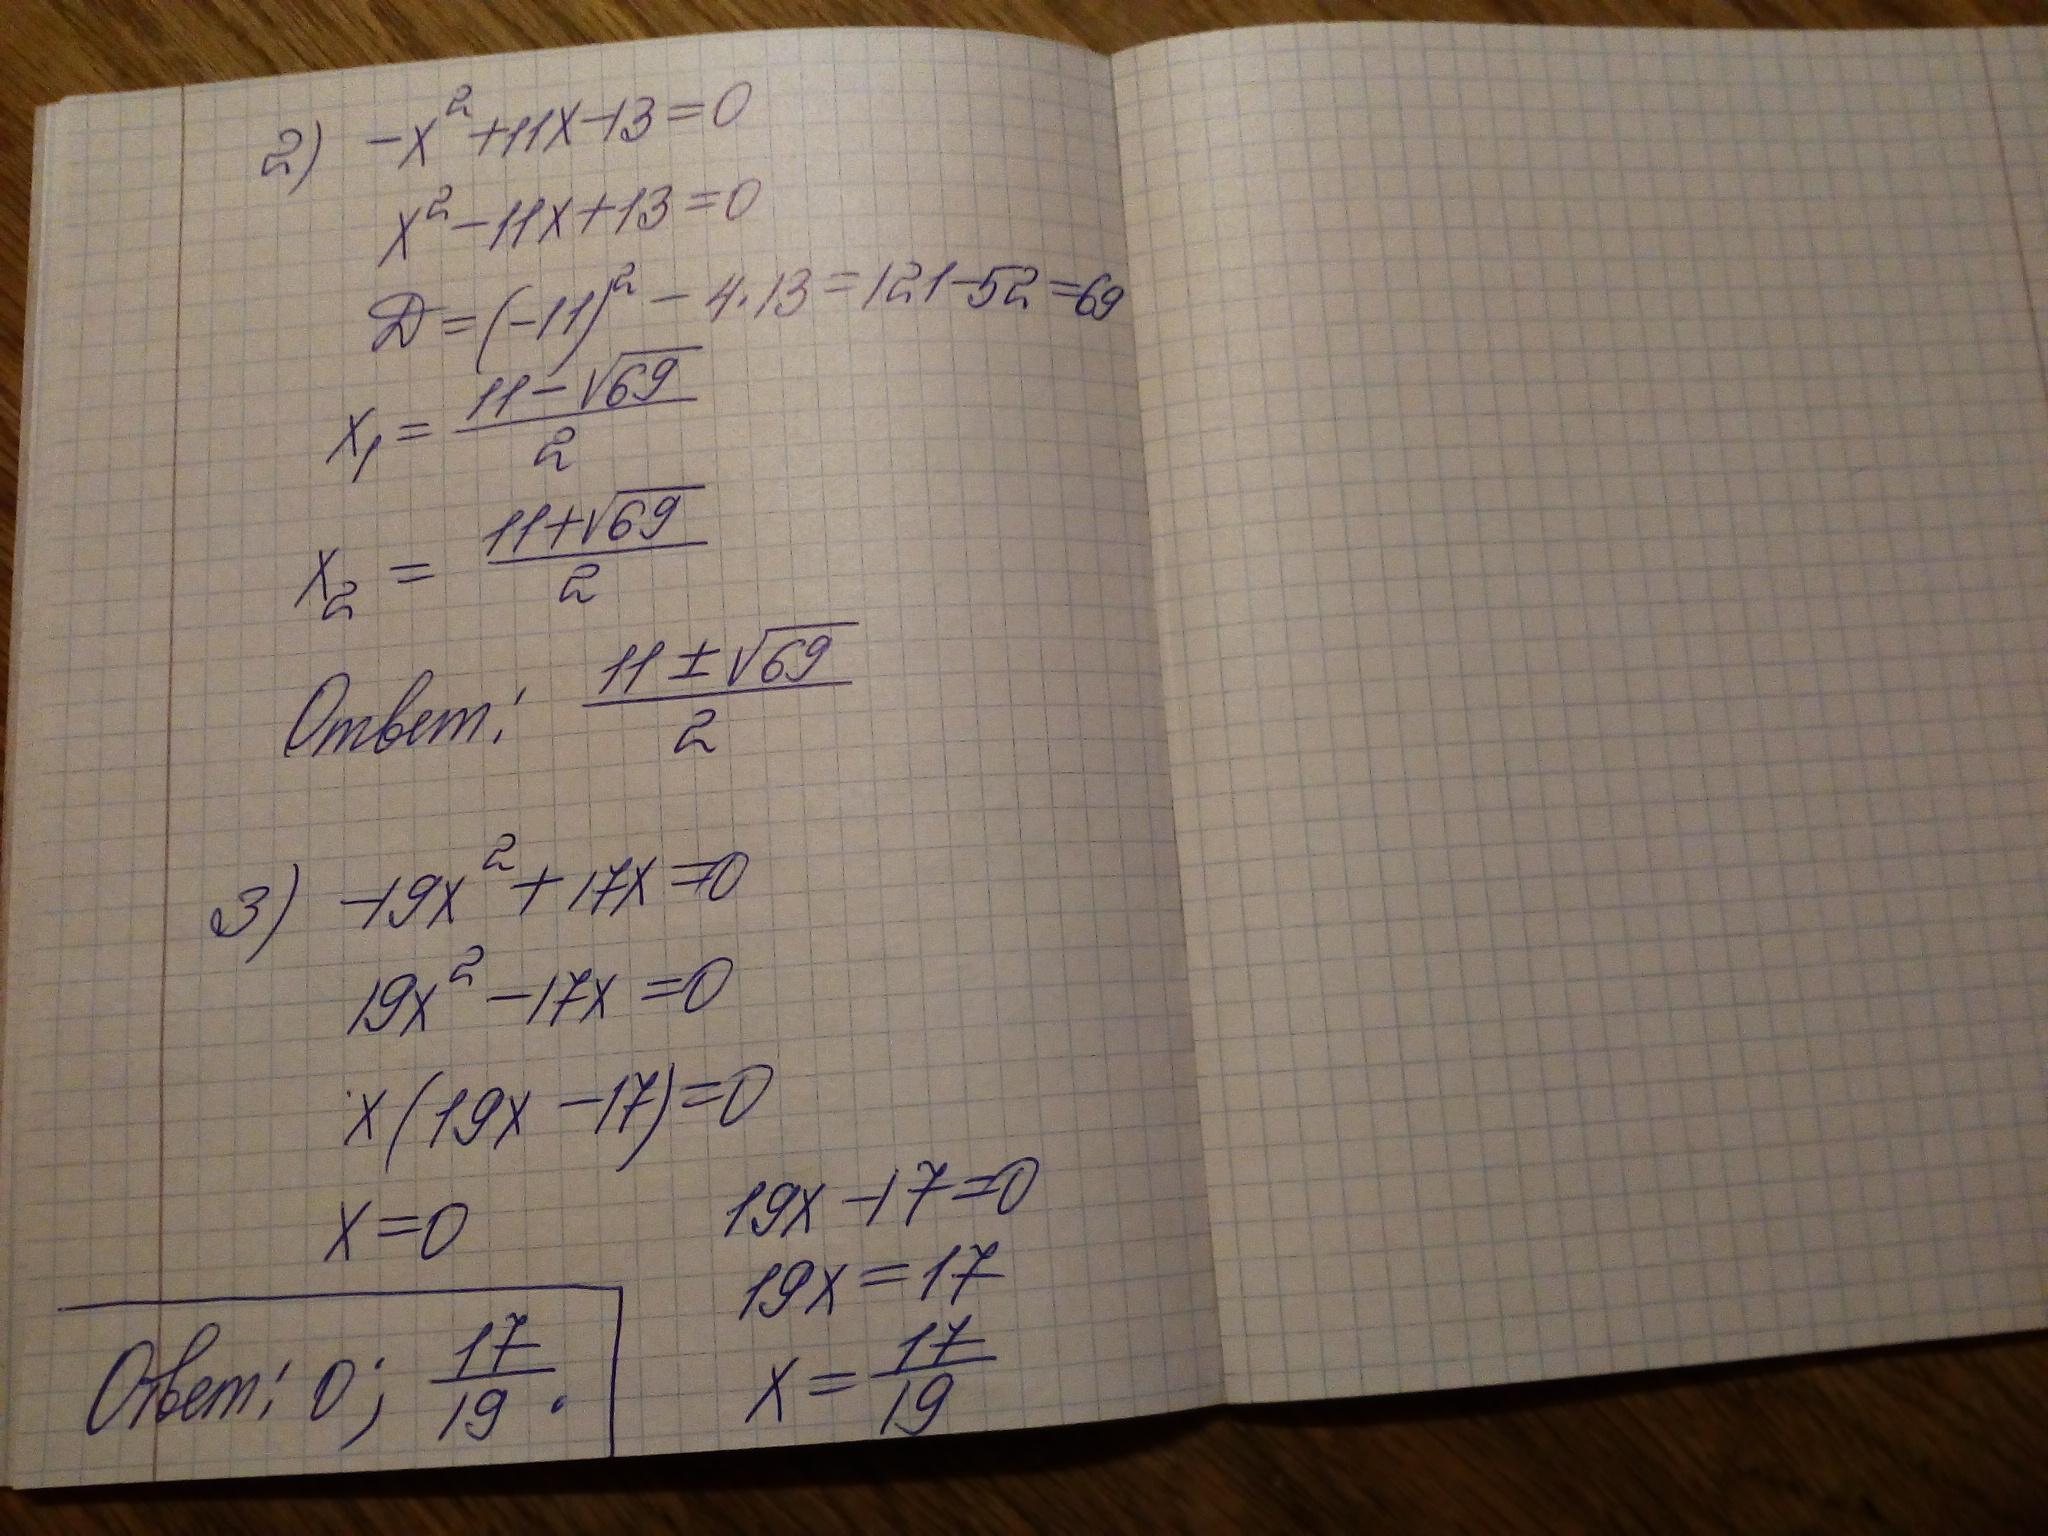 2) -x² + 11x - 13 = 0
x² - 11x + 13 = 0
D = (-11)² - 4·13 = 121 - 52 = 69
x₁ = (11 - √69)/2
x₂ = (11 + √69)/2
Ответ: (11 ± √69)/2
3) -19x² + 17x = 0
19x² - 17x = 0
x(19x - 17) = 0
x = 0
19x - 17 = 0
19x = 17
x = 17/19
Ответ: 0; 17/19.